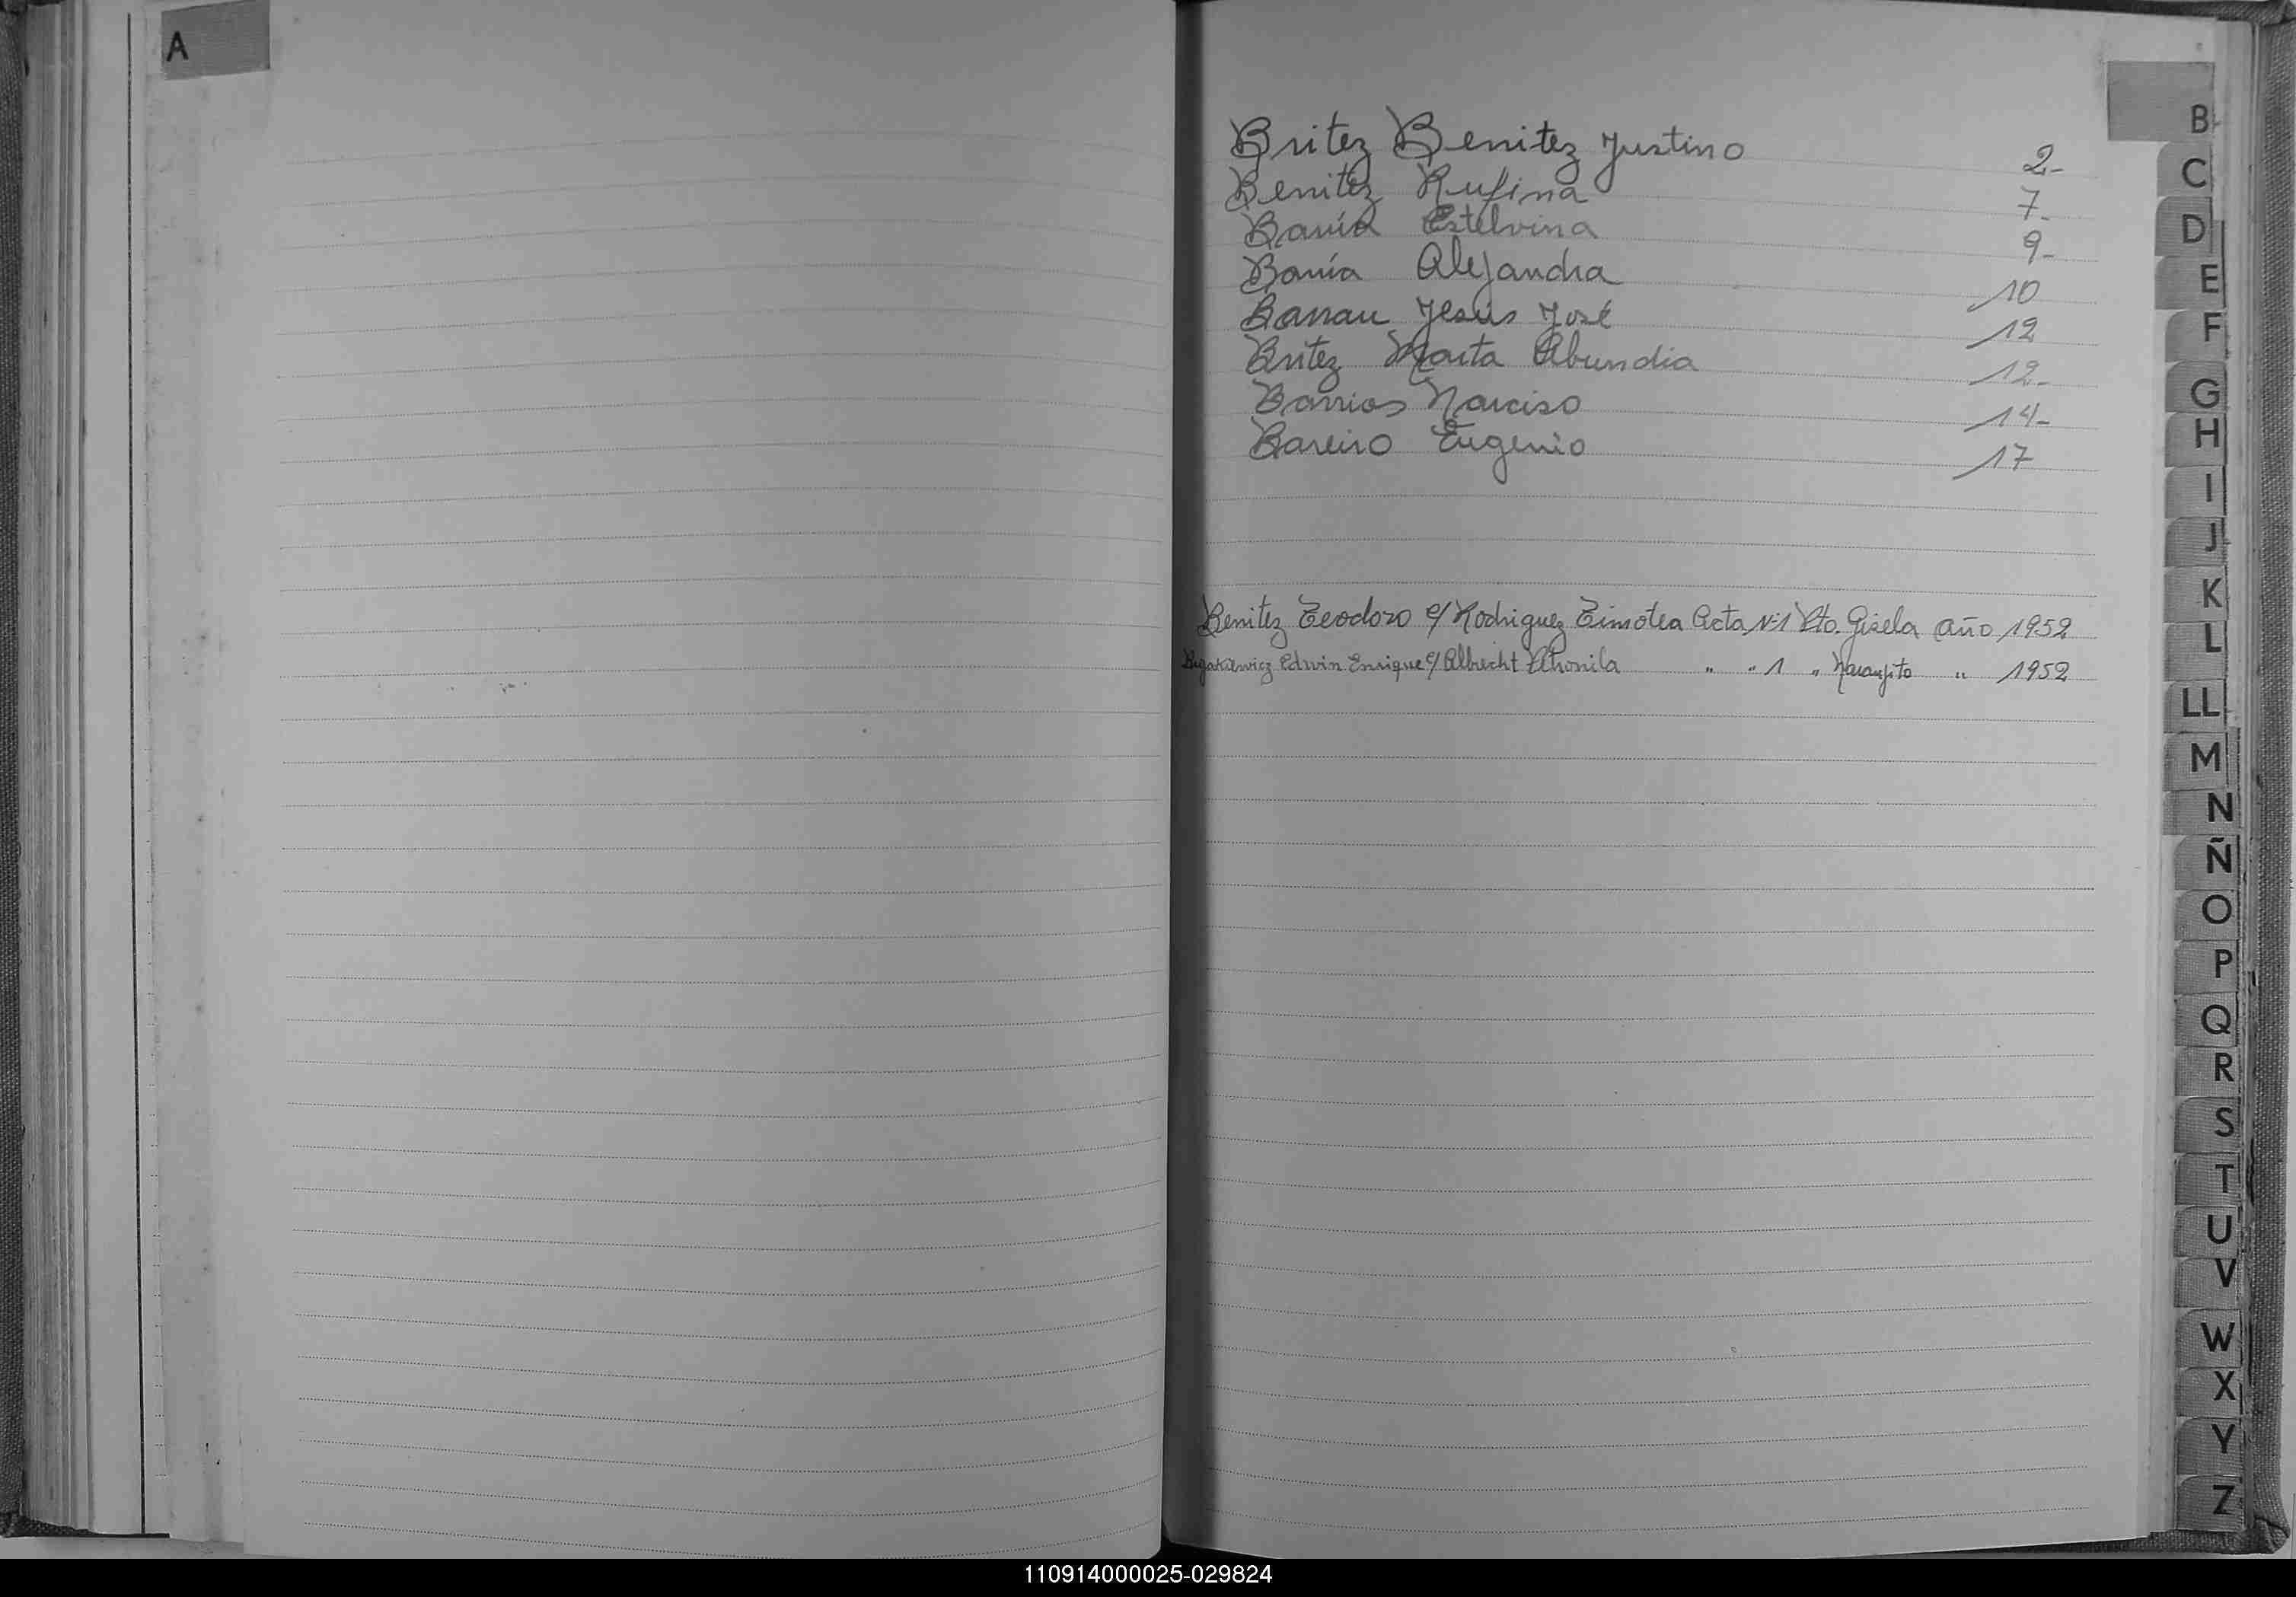 A
Britez Benitez Justino 2-
Benitez Rufina 7-
Estelvina 9-
Alejandra 10
Jesús José 12
Britez Marta Abundia 12-
Barrios Narciso 14-
Bareiro Eugenio 17
Benitez Teodoro c/ Rodriguez Timotea Acta Nº1 Pto. Gisela Año 1952
Edwin Enrique c/ Albrecht " " 1 " Naranjito " 1952
B
C
D
E
F
G
H
I
J
K
L
LL
M
N
Ñ
O
P
Q
R
S
T
U
V
W
X
Y
Z
110914000025-029824